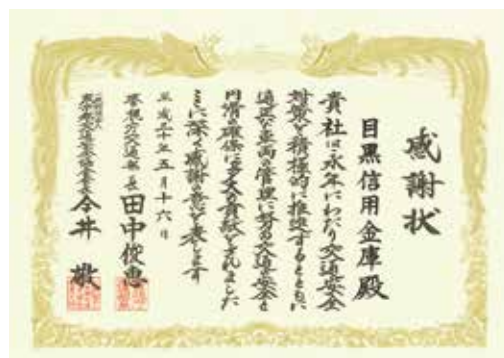 感謝状
目黒信用金庫殿
貴社は永年にわたり交通安全
対策を積極的に推進するとともに
適正な車両の管理に努め交通安全と
円滑の確保に多大な貢献をされました
ここに深く感謝の意を表します
平成三十年五月十六日
警視庁交通部長 田中俊恵
東京都交通安全協会会長 今井敬